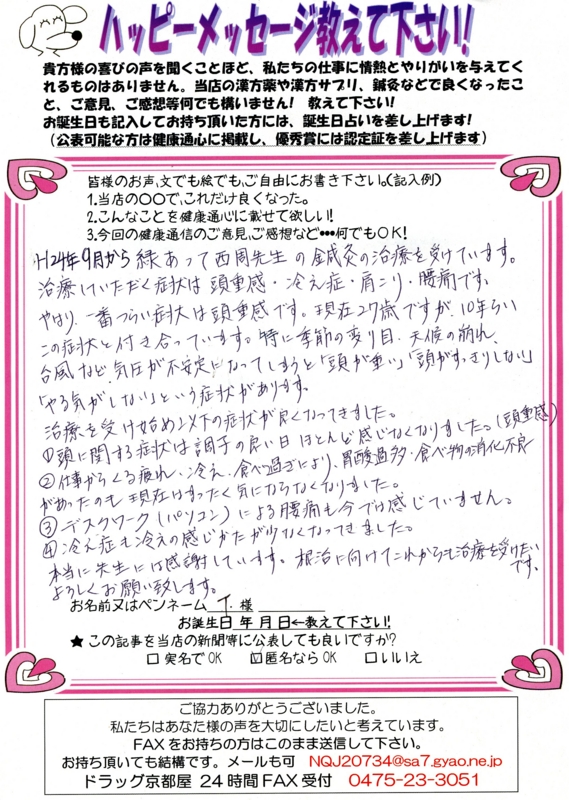 ハッピーメッセージ教えて下さい!
貴方様の喜びの声を聞くことほど、私たちの仕事に情熱とやりがいを与えてく
れるものはありません。当店の漢方薬や漢方サプリ、鍼灸などで良くなったこ
と、ご意見、ご感想等何でも構いません! 教えて下さい!
お誕生日も記入してお持ち頂いた方には、誕生日占いを差し上げます!
(公表可能な方は健康通心に掲載し、優秀賞には認定証を差し上げます)
皆様のお声、文でも絵でも、ご自由にお書き下さい。(記入例)
1.当店の〇〇で、これだけ良くなった。
2.こんなことを健康通心に載せて欲しい!
3.今回の健康通信のご意見、ご感想など•••何でもOK!
H24年9月から縁あって西周先生の金鍼灸の治療を受けています。
治療していただく症状は頭重感・冷え症・肩こり・腰痛です。
やはり、一番つらい症状は頭重感です。現在27歳ですが、10年くらい
この症状と付き合っています。特に季節の変り目、天候の崩れ、
台風など、気圧が不安定になってしまうと「頭が重い」「頭がすっきりしない」
「やる気がしない」という症状があります。
治療を受け始め以下の症状が良くなってきました。
①頭に関する症状は調子の良い日ほとんど感じなくなりました。(頭重感)
②仕事からくる疲れ、冷え、食べ過ぎにより、胃酸過多・食べ物の消化不良
があったのも現在はまったく気にならなくなりました。
③デスクワーク(パソコン)による腰痛も今では感じていません。
④冷え症も冷えの感じかたが少なくなってきました。
本当に先生には感謝しています。根治に向けてこれからも治療を受けたいです。
よろしくお願い致します。
お名前又はペンネーム T. 様
お誕生日 年 月 日←教えて下さい!
★ この記事を当店の新聞等に公表しても良いですか?
□ 実名でOK ☑ 匿名ならOK □ いいえ
ご協力ありがとうございました。
私たちはあなた様の声を大切にしたいと考えています。
FAXをお持ちの方はこのまま送信して下さい。
お持ち頂いても結構です。メールも可 NQJ20734@sa7.gyao.ne.jp
ドラッグ京都屋 24時間FAX受付 0475-23-3051